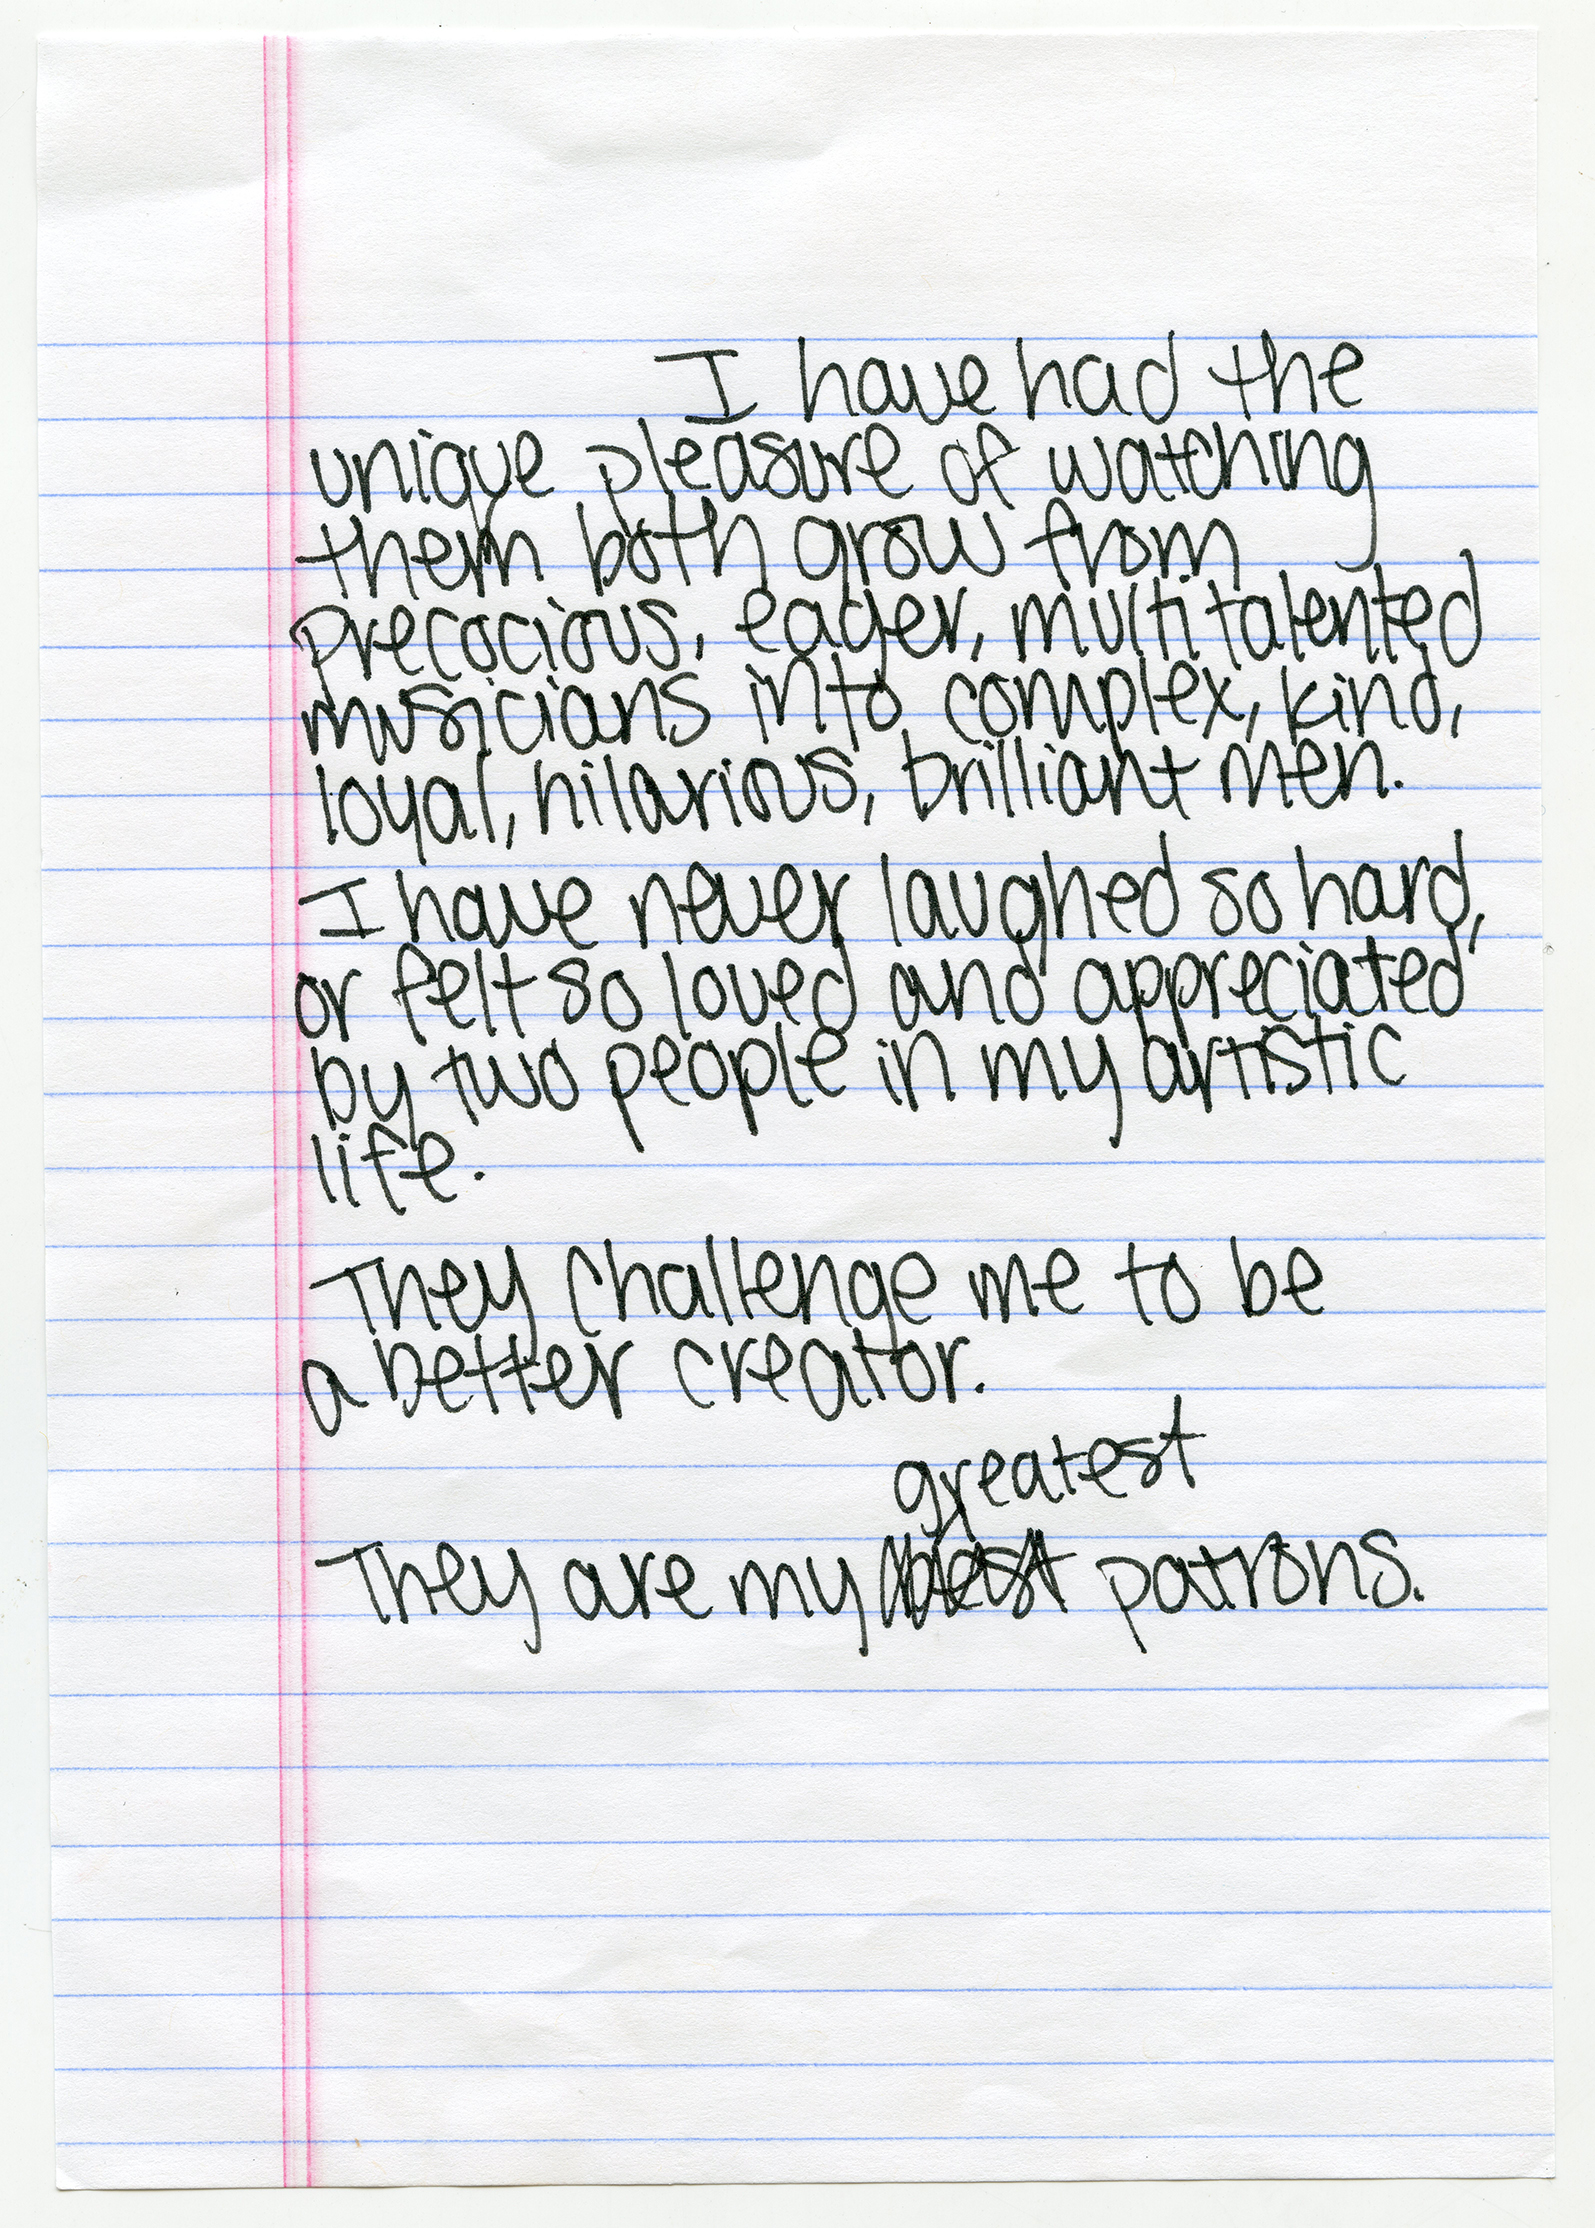 I have had the
unique pleasure of watching
them both grow from
precocious, eager, multitalented
musicians into complex, kind,
loyal, hilarious, brilliant men.
I have never laughed so hard,
or felt so loved and appreciated
by two people in my artistic
life.
They challenge me to be
a better creator.
greatest
They are my best patrons.